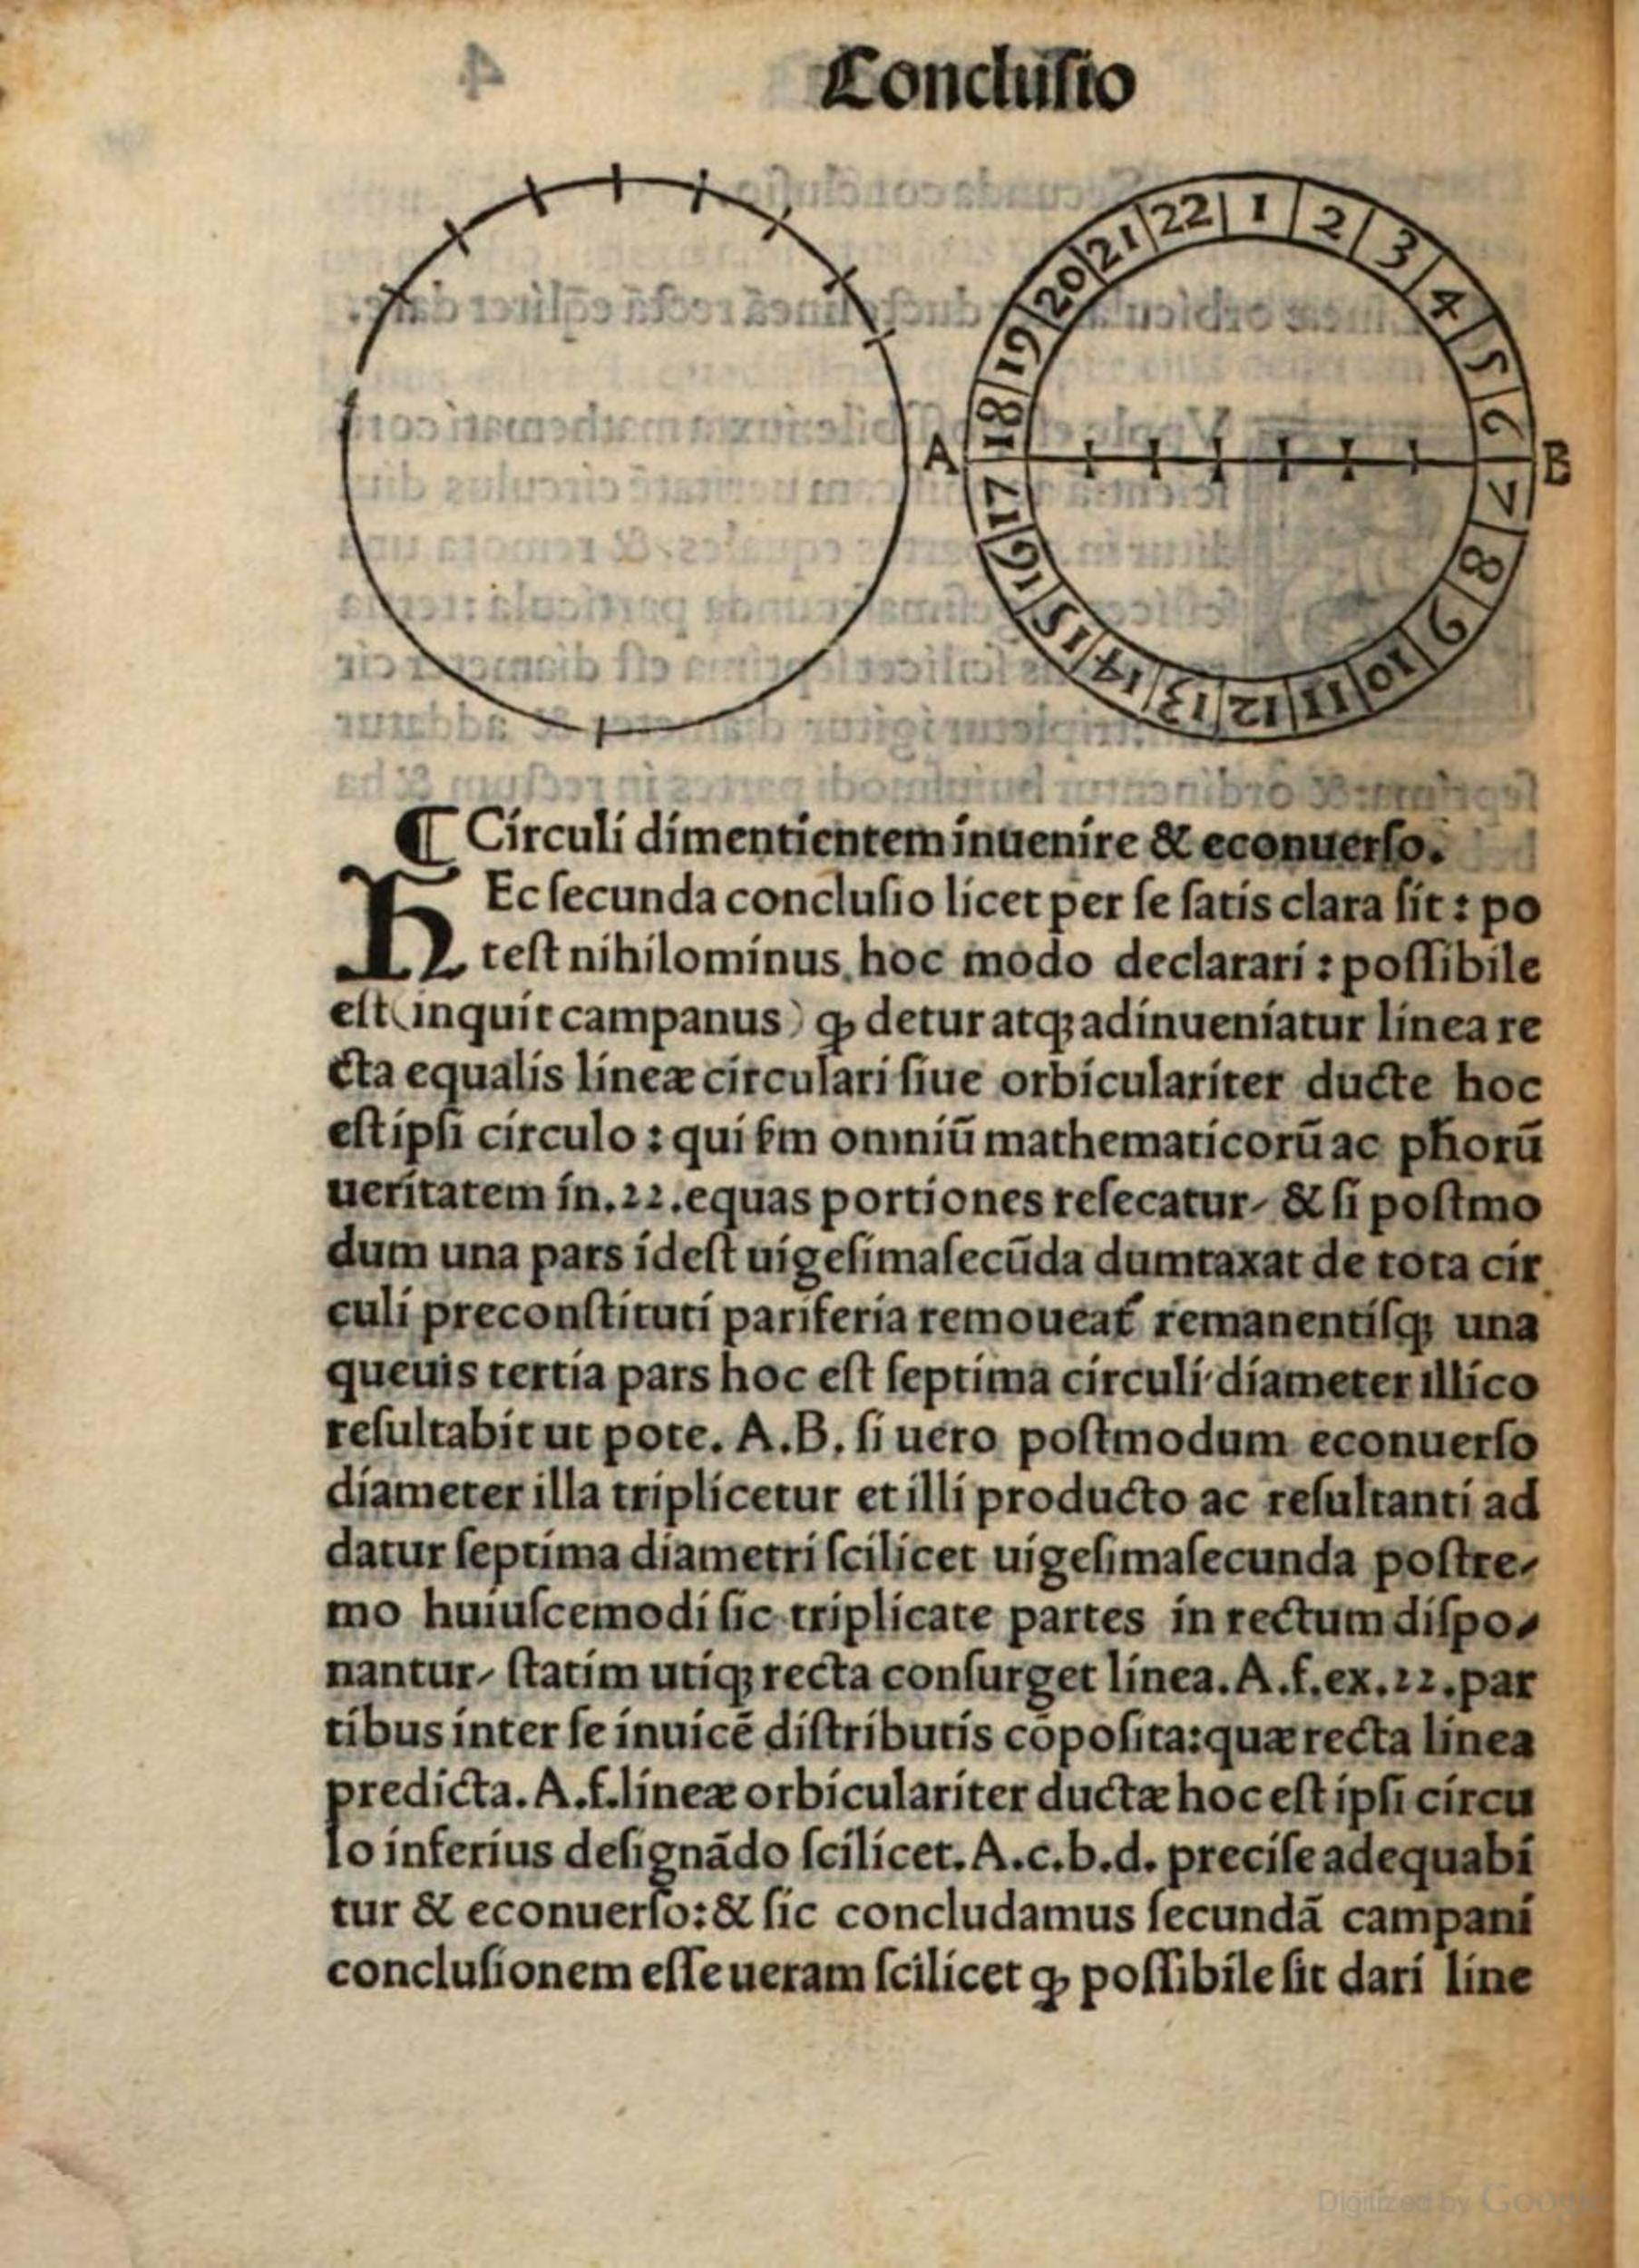 Concluſio
22 1 2 3 4 5 6 7 8 9 10 11 12 13 14 15 16 17 18 19 20 21
A B
¶ Circuli dimentientem inuenire & econuerſo.
HEc ſecunda concluſio licet per ſe ſatis clara ſit: po
teſt nihilominus hoc modo declarari: poſſibile
eſt (inquit campanus) ꝙ detur atq; adinueniatur linea re
cta equalis lineæ circulari ſiue orbiculariter ducte hoc
eſt ipſi circulo: qui ẜm omniū mathematicorū ac ph̄orū
ueritatem in.22.equas portiones reſecatur, & ſi poſtmo
dum una pars ideſt uigeſimaſecūda dumtaxat de tota cir
culi preconſtituti pariferia remoueat᷑ remanentiſq; una
queuis tertia pars hoc eſt ſeptima circuli diameter illico
reſultabit ut pote. A.B. ſi uero poſtmodum econuerſo
diameter illa triplicetur et illi producto ac reſultanti ad
datur ſeptima diametri ſcilicet uigeſimaſecunda poſtre-
mo huiuſcemodi ſic triplicate partes in rectum diſpo-
nantur, ſtatim utiq; recta conſurget linea. A.f.ex.22.par
tibus inter ſe inuicē diſtributis cōpoſita: quæ recta linea
predicta. A.f.lineæ orbiculariter ductæ hoc eſt ipſi circu
lo inferius deſignādo ſcilicet. A.c.b.d. preciſe adequabi
tur & econuerſo: & ſic concludamus ſecundā campani
concluſionem eſſe ueram ſcilicet ꝙ poſſibile ſit dari line
Digitized by Google